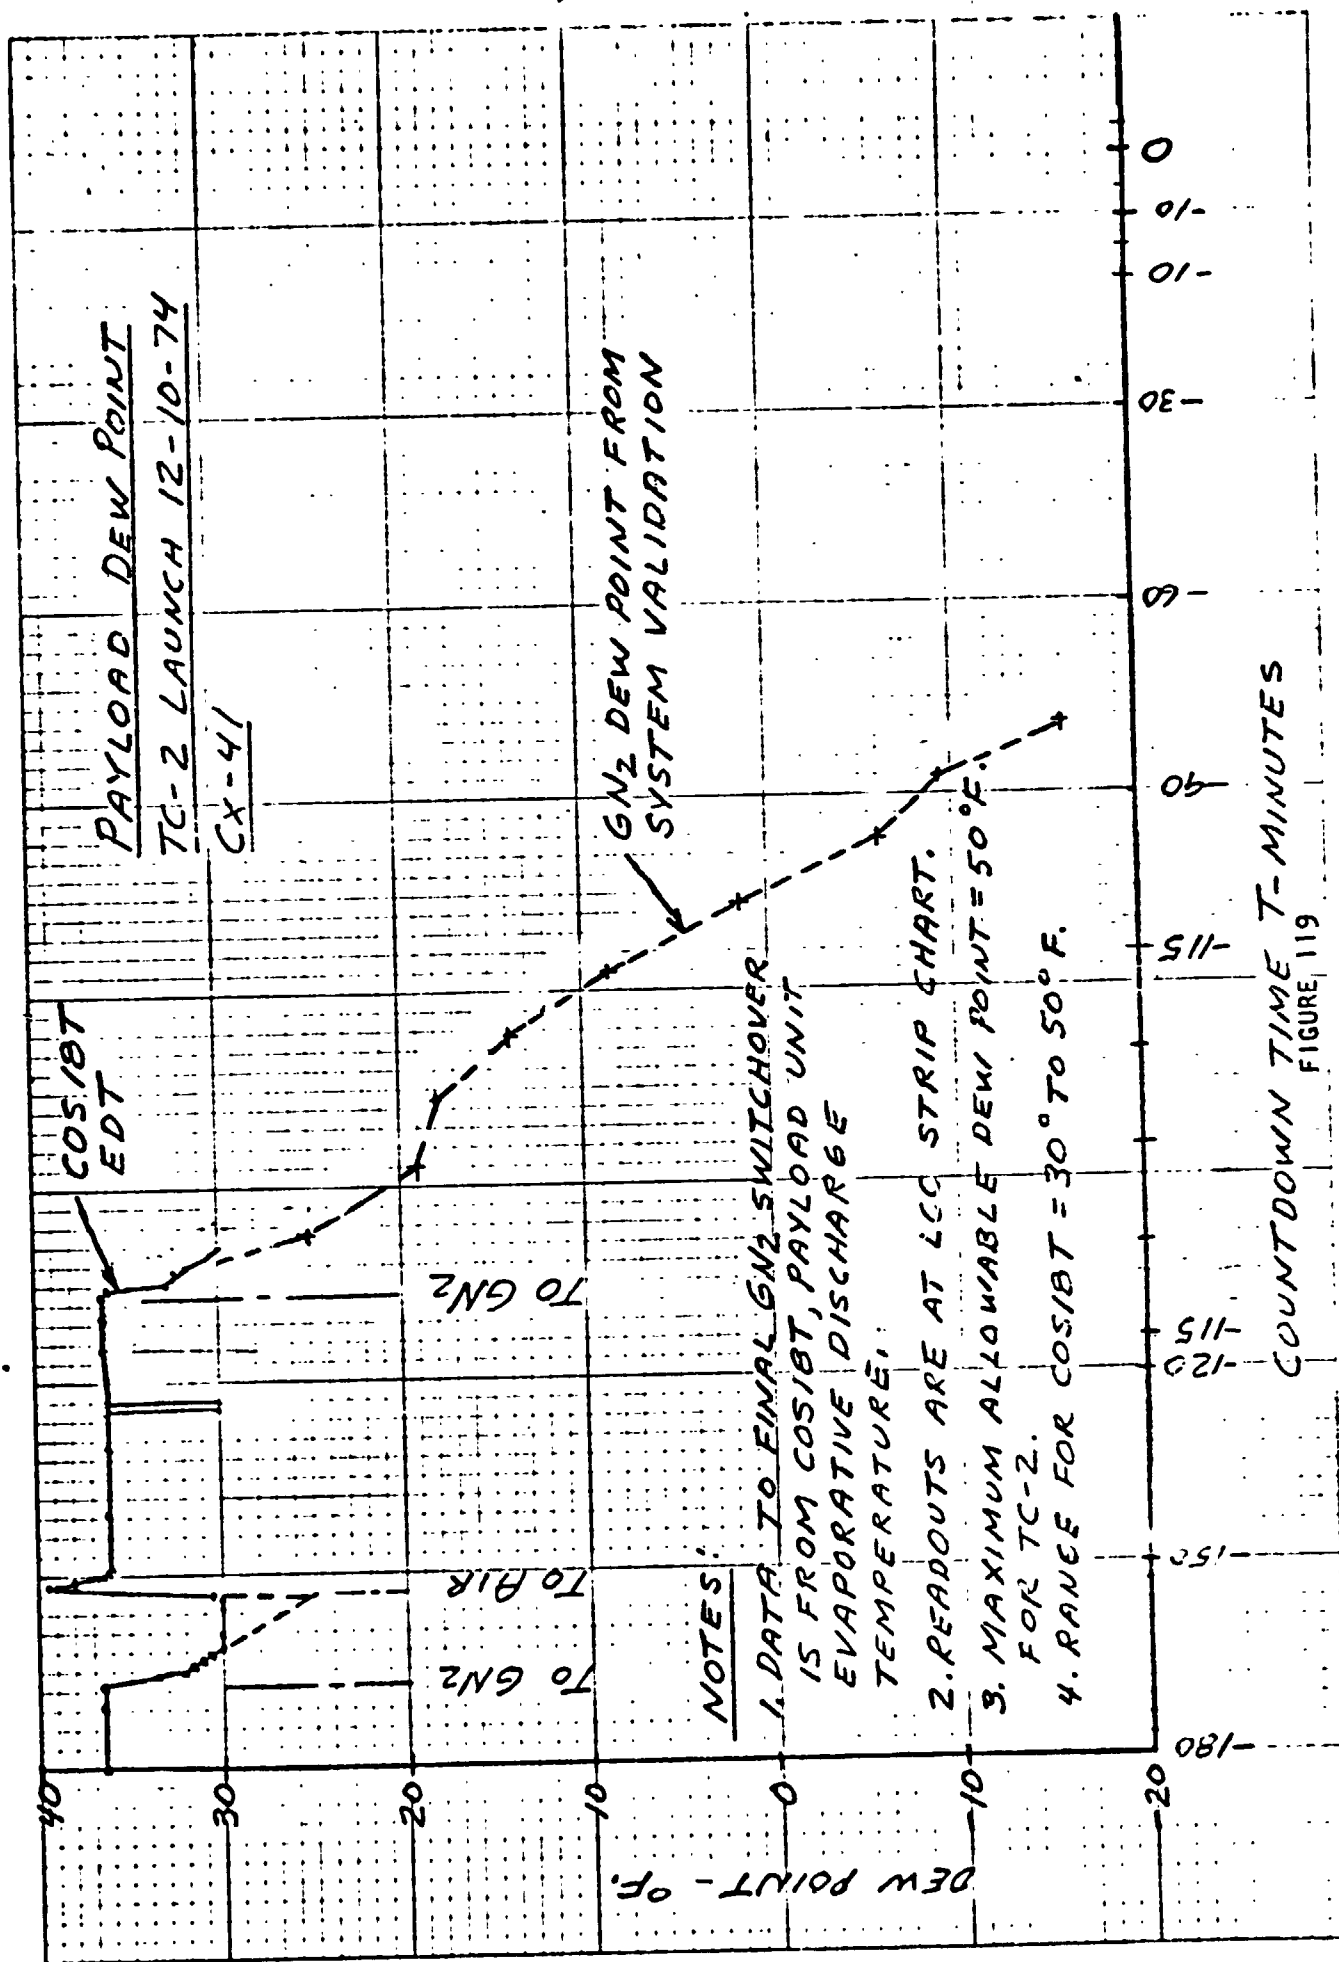 PAYLOAD DEW POINT
TC-2 LAUNCH 12-10-74
CX-41
COS18T
EDT
GN2 DEW POINT FROM
SYSTEM VALIDATION
TO GN2
TO AIR
TO GN2
NOTES:
1. DATA TO FINAL GN2 SWITCHOVER
IS FROM COS18T, PAYLOAD UNIT
EVAPORATIVE DISCHARGE
TEMPERATURE.
2. READOUTS ARE AT LCC STRIP CHART.
3. MAXIMUM ALLOWABLE DEW POINT = 50°F.
FOR TC-2.
4. RANGE FOR COS18T = 30° TO 50° F.
DEW POINT - °F.
40
30
20
10
0
-10
-20
-180
-150
-120
-115
-115
-90
-60
-30
-10
-10
0
COUNTDOWN TIME T-MINUTES
FIGURE 119